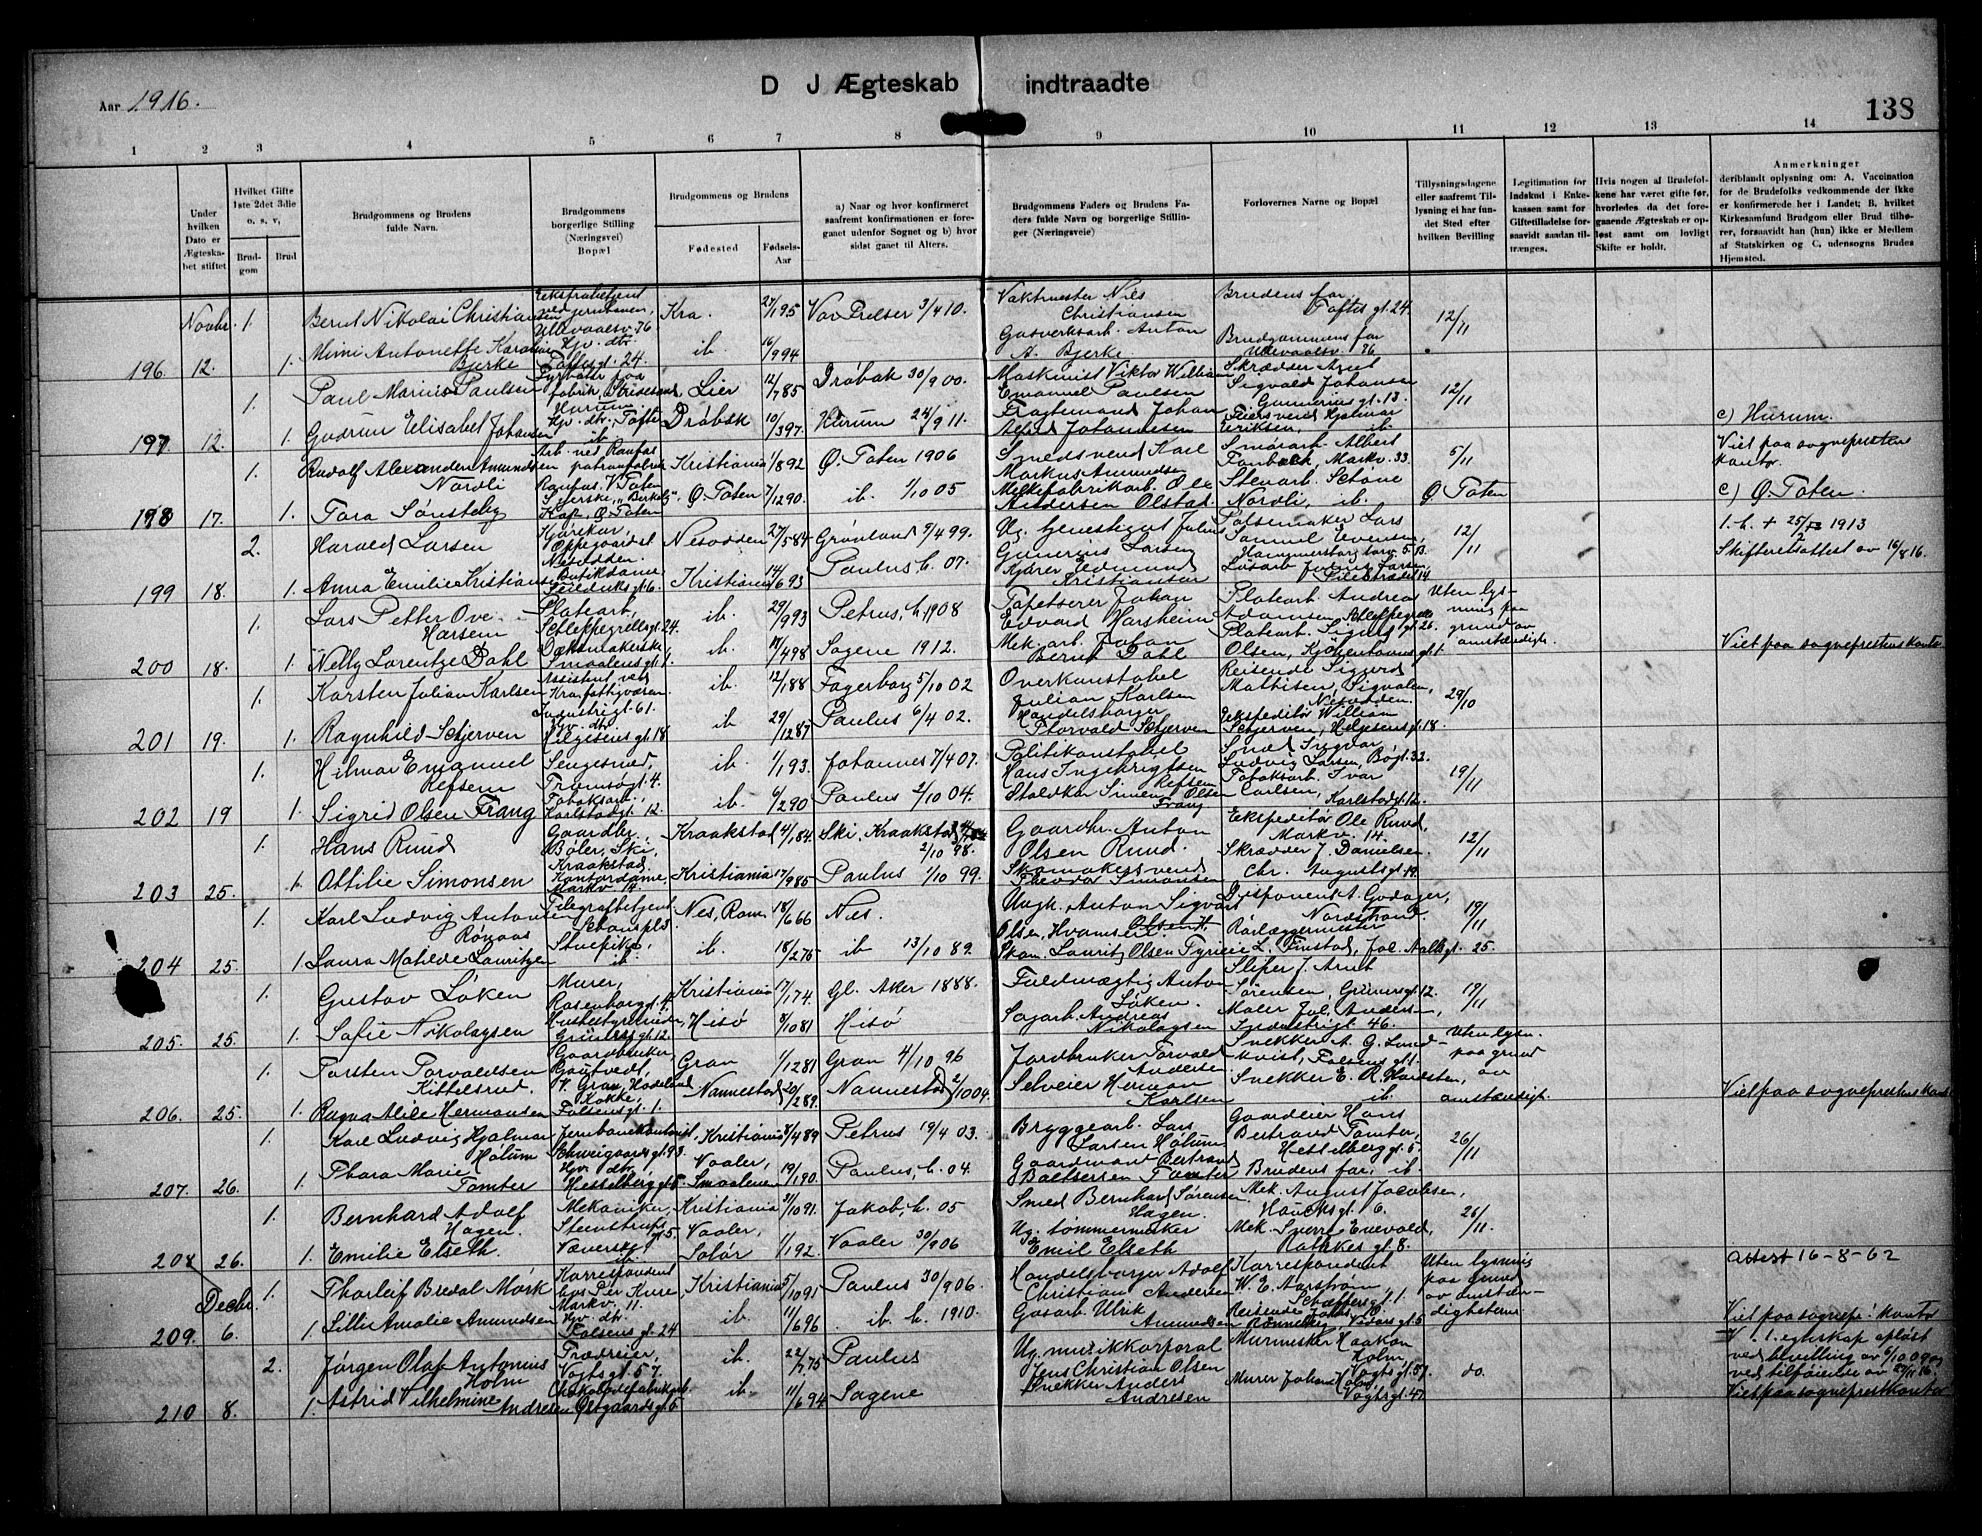 Aar 1916.
D J Ægteskab indtraadte
138
1 2 3 4 5 6 7 8 9 10 11 12 13 14
Under hvilken Dato er Ægteskabet stiftet
Hvilket Gifte 1ste 2det 3die o. s. v,
Brudgom
Brud
Brudgommens og Brudens fulde Navn.
Brudgommens borgerlige Stilling (Næringsvei) Bopæl
Brudgommens og Brudens
Fødested
Fødsels-Aar
a) Naar og hvor konfirmeret saafremt konfirmationen er foregaaet udenfor Sognet og b) hvor sidst gaaet til Alters.
Brudgommens Faders og Brudens Faders fulde Navn og borgerlige Stillinger (Næringsveie)
Forlovernes Navne og Bopæl
Tillysningsdagene eller saafremt Tillysning ei har fundet Sted efter hvilken Bevilling
Legitimation for Indskud i Enkekassen samt for Giftetilladelse forsaavidt saadan tiltrænges.
Hvis nogen af Brudefolkene har været gifte før, hvorledes da det foregaaende Ægteskab er opløst samt om lovligt Skifte er holdt.
Anmerkninger
deriblandt oplysning om: A. Vaccination for de Brudefolks vedkommende der ikke er konfirmerede her i Landet; B. hvilket Kirkesamfund Brudgom eller Brud tilhører, forsaavidt han (hun) ikke er Medlem af Statskirken og C, udensogns Brudes Hjemsted.
Novbr. 1. Bernt Nikolai Christiansen Ullevaalsv. 76 Kra. 27/1 95 Vor Frelser 3/4 10. Vaktmester Nils Christiansen Brudens far, Toftes gt. 24. 12/11
196. 12. 1. Mimi Antonette Karoline Bjerke Hjv. dtr. Toftesgt. 24. ib. 16/9 94 Gasverksarb. Anton A. Bjerke Brudgommens far Ullevaalsv. 76
1. Paul Marius Paulsen Fyrbøter paa fabrik, Hurum Lier 12/7 85 Drøbak 30/9 00. Maskinist Viktor William Emanuel Paulsen Skrædder Arnt Sigvald Johansen Gunnerius gt. 13. 12/11
197 12. 1. Gudrun Elisabet Johansen Hjv. dtr. Tofte ib. Drøbak 10/3 97. Hurum 24/9 11. Fragtemand Johan Alfred Johannesen Feiersvend Hjalmar Eriksen, ib. c) Hurum.
1. Rudolf Alexander Amundsen Nordli Arb. ved Raufos patronfabrik Raufos, V. Toten Kristiania 1/8 92 Ø. Toten 1906 Smedsvend Karl Markus Amundsen Albert Fonbæk, Markv. 33. 5/11 Viet paa sogneprestens kontor.
198 17. 1. Tora Sønsteby Ø. Toten Ø. Toten 7/12 90. ib. 1/10 05 Melkefabrikarb. Ole Andersen Olstad Nordli, ib. Ø Toten c) Ø. Toten.
2. Harald Larsen Kjørekar, Oppegaard st. Nesodden. Nesodden 27/5 84 Grønland 9/4 99. Ug. Gunerius Larsen Pølsemaker Lars Samuel Evensen, Hammersborg torv 5 B. 12/11 1. h. + 25/2 1913 Skifteretsattest av 16/8 16.
199 18. 1. Anna Emilie Kristiansen Butikdame, Seilduksgt. 6. Kristiania 14/6 93 Paulus h. 07. Kjører Edmund Kristiansen Løsarb. Julius Larsen, Pilestrædet 14
1. Lars Petter Ove Harsem Platearb, Schleppegrellsgt. 24. ib. 29/9 93 Petrus, h. 1908 Tapetserer Johan Edvard Harsheim Platearb. Andreas Adamsen Uten lysning paa grund av omstændigh.
200 18. 1. Nelly Lorentze Dahl Smaalensgt. 1. ib. 17/4 98 Sagene 1912. Mek. arb. Johan Bernt Dahl Olsen, Kjøbenhavnsgt. Viet paa sogneprestens kontor
1. Karsten Julian Karlsen Assistent ved Kra. fattigvæsen Industrigt. 61. ib. 12/1 88 Fagerborg 5/10 02 Overkonstabel Julian Karlsen Reisende Sigurd Mathisen, 29/10
201 19. 1. Ragnhild Schjerven Hjv. dtr. Helgesensgt. 18 ib 29/12 87 Paulus 6/4 02. Handelsborger Thorvald Schjerven Ekspeditør William Schjerven, Helgesensgt. 18.
1. Hilmar Emanuel Refsem Sengesmed, Tromsøgt. 4. ib. 1/1 93. Johannes 7/4 07. Politikonstabel Hans Ingebrigtsen Refsem Smed Ingvar Ludvig Larsen, Bøgt. 32. 19/11
202 19 1. Sigrid Olsen Frang Tobaksarb., Karlstadgt. 12. ib. 6/2 90 Paulus 2/10 04. Staldkar Simen Olsen Frang Tobaksarb. Ivar Carlsen, Karlstadgt. 12.
1. Hans Ruud Gaardbr. Bøler, Ski, Kraakstad Kraakstad 4/1 84. Ski, Kraakstad 2/10 98. Gaardbr. Anton Olsen Ruud. Ekspeditør Ole Ruud, Markv. 14. 12/11
203 25. 1. Ottilie Simonsen Kontordame, Markv. 14. Kristiania 17/9 85 Paulus 1/10 99. Skomakersvend Theodor Simonsen Skrædder J. Danielsen Chr. Augustsgt. 19.
1. Karl Ludvig Antonsen Rønaas Telegrafbetjent Nes, Rom. 18/6 66 Nes. Ungk. Anton Sigvart Olsen, Disponent A. Godager, Nordstrand. 19/11
204 25. 1. Laura Matilde Lauritzen Stuepike, ib. ib. 18/2 75 ib 13/10 89. Skom. Lauritz Olsen Rørlæggermester L. Finstad, Jac. Aallsgt. 25.
1. Gustav Løken Murer, Rosenborggt. 4 Kristiania 17/1 74. Gl. Aker 1888. Fuldmægtig Anton Løken. Sliper J. Arnt Sørensen, Grünersgt. 12. 19/11
205. 25. 1. Sofie Nikolaysen Husbestyrerinde, Grünersgt. 12. Hisø 8/10 81 Hisø Sagarb. Andreas Nikolaysen Maler Joh. Andersen, 46.
1. Torsten Torvaldsen Kittelsrud. Gaardbruker, V. Gran, Hadeland Gran 1/12 81 Gran 4/10 96 Jordbruker Torvald Andersen Snekker A. G. Lundkvist, Falsensgt. 1. Uten lysn. paa grund av omstændigh.
206. 25. 1. Ragna Alise Hermansen Kokke, Falsensgt. 1. Nannestad 20/2 89. Nannestad 2/10 04. Selveier Herman Karlsen Snekker E. R. ib. Viet paa sogneprestens kontor
1. Karl Ludvig Hjalmar Holum Jernbanekontorist, Schweigaardsgt. 93. Kristiania 8/4 89 Petrus 19/4 03. Bryggearb. Lars Larsen Holum Gaardeier Hans Bertrand Tomter, Hesselberggt. 5. 26/11
207. 26. 1. Thora Marie Tomter Hjv. dtr. Hesselberggt. 5. Vaaler, Smaalenene 19/1 90. Paulus, h. 04. Gaardmand Bertrand Baltsersen Tomter Brudens far, ib.
1. Bernhard Adolf Hagen. Mekaniker, Steenstrupsgt. 5. Kristiania 31/10 91. Jakob, h. 05 Smed Bernhard Sørensen Hagen Mek. August Jacobsen, Hauchsgt. 6. 26/11.
208 26. 1. Emilie Elseth. Væverske ib. Vaaler, Solør 1/1 92. Vaaler 30/9 06 Ug. tømmermerker Emil Elseth Mek. Sverre Enevold, Rathkesgt. 8. attest 16-8-62
Decbr. 1. Thorleif Bredal Mørk Korrespondent hos Per Kure, Markv. 11. Kristiania 5/10 91 Paulus 30/9 06. Handelsborger Adolf Christian Andersen Korrespondent W. E. Aarstrøm, Schæffersgt. 1. Uten lysning paa grund av omstændigheterne
209. 6. 1. Lilli Amalie Amundsen Hjv. dtr. Falsensgt. 24 ib. 11/6 96 ib. h. 1910. Gasarb. Ulrik Amundsen Reisende Viet paa sognepr. kontor
2. Jørgen Olaf Antonius Holm Trædreier, Vogtsgt. 57. ib. 22/7 75 Paulus Ug. musikkorporal Jens Christian Olsen Murmester Haakon Holm Vogtsgt. 57. do. 1. egteskap opløst ved bevilling av 6/10 09 og ved tilføiende av 27/11 16.
210 8. 1. Astrid Vilhelmine Andresen Chokoladefabrikarb. Østgaardsgt. 6 ib. 11/6 94 Sagene Snekker Anders Andresen Murer Johan Holm Vogtsgt. 47. Viet paa sogneprestkontor